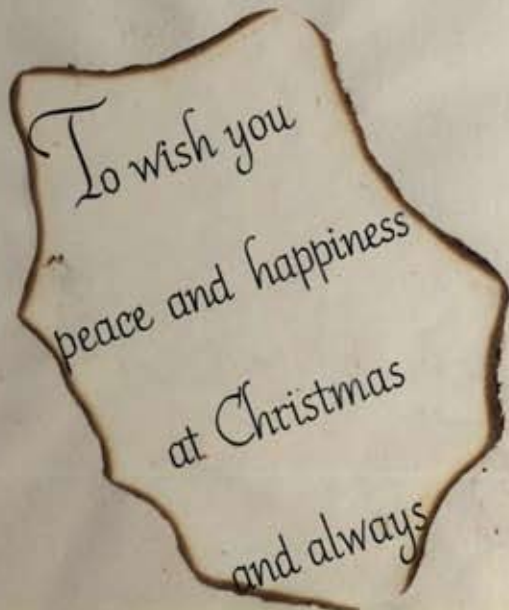 To wish you
peace and happiness
at Christmas
and always